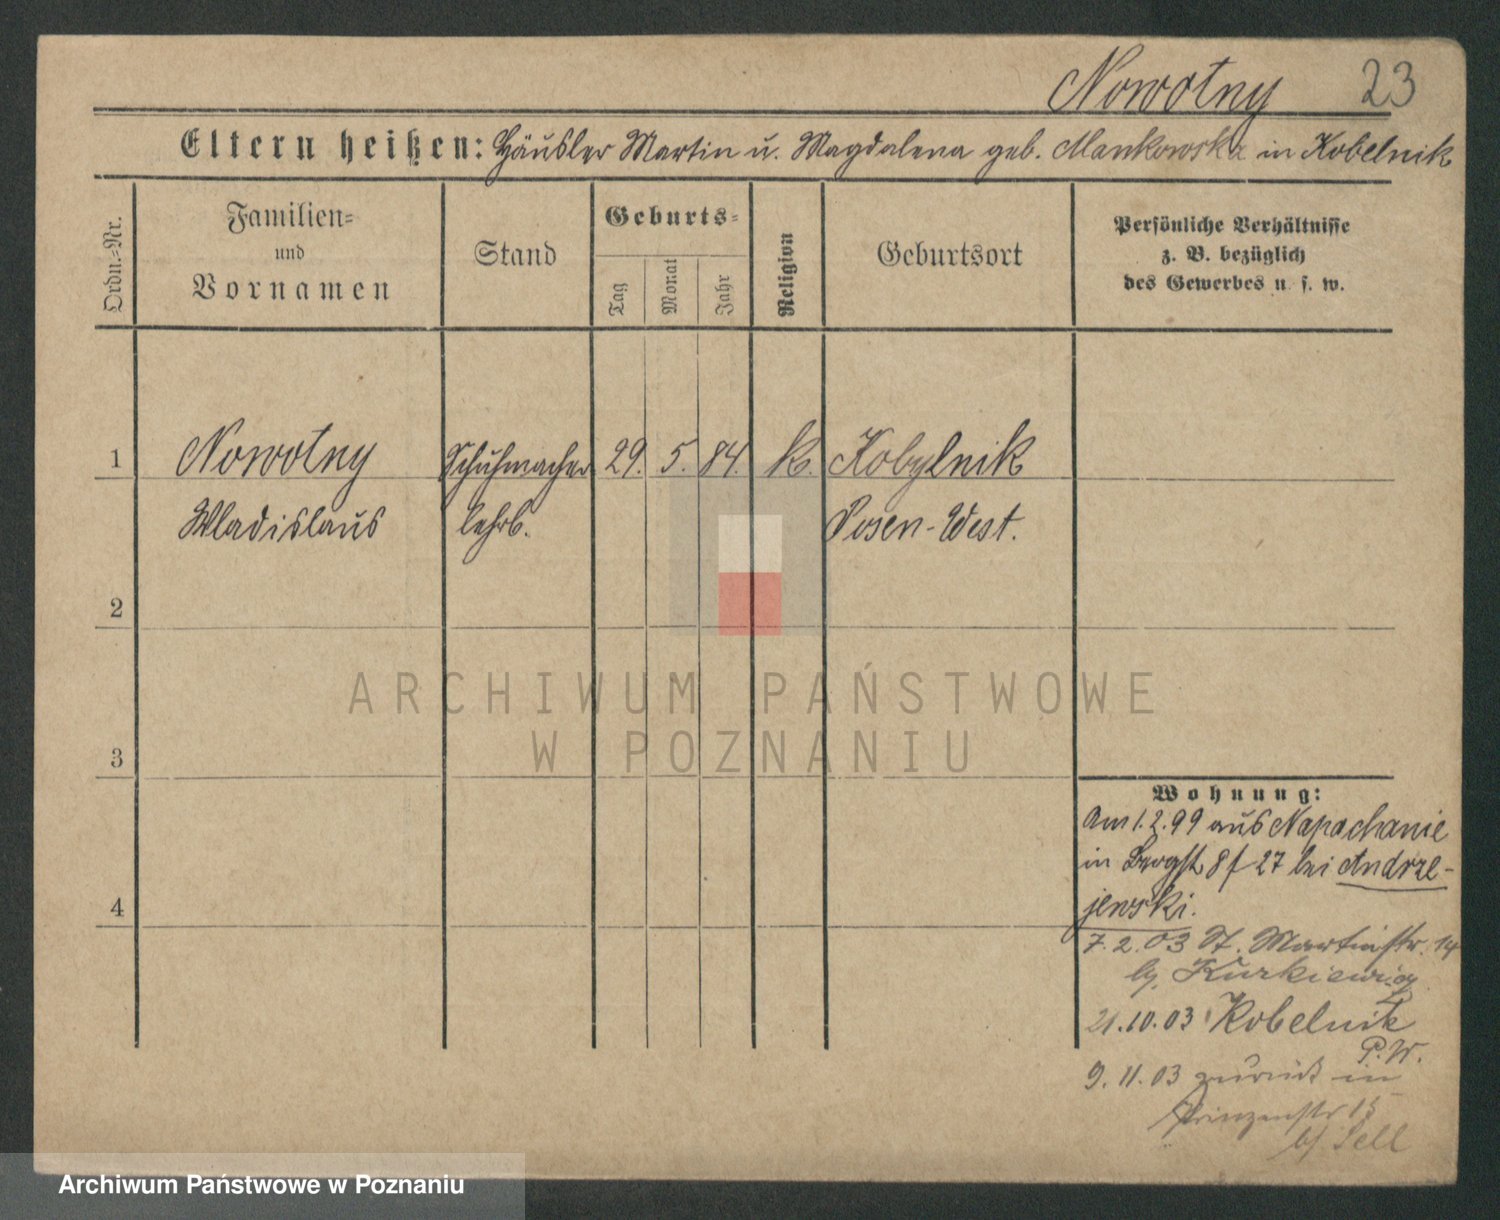 Nowotny 23
Eltern heißen: Häusler Martin u. Magdalena geb. Mankowska in Kobelnik
Ordn.-Nr.
Familien-
und
Vornamen
Stand
Geburts-
Tag
Monat
Jahr
Religion
Geburtsort
Persönliche Verhältnisse
z. B. bezüglich
des Gewerbes u. s. w.
1 Nowotny Schuhmacher 29. 5. 84. k. Kobylnik
Wladislaus lehrb. Posen-West.
2
3
4
ARCHIWUM PAŃSTWOWE
W POZNANIU
Wohnung:
Am 1.2.99 aus Napachanie
in 27 bei Andrze-
jewski.
7.2.03 St. Martinstr. 14
b/ Kurkiewicz
21.10.03 Kobelnik
P.W.
9.11.03 zurück in
Prinzenstr 15
b/ Sell
Archiwum Państwowe w Poznaniu